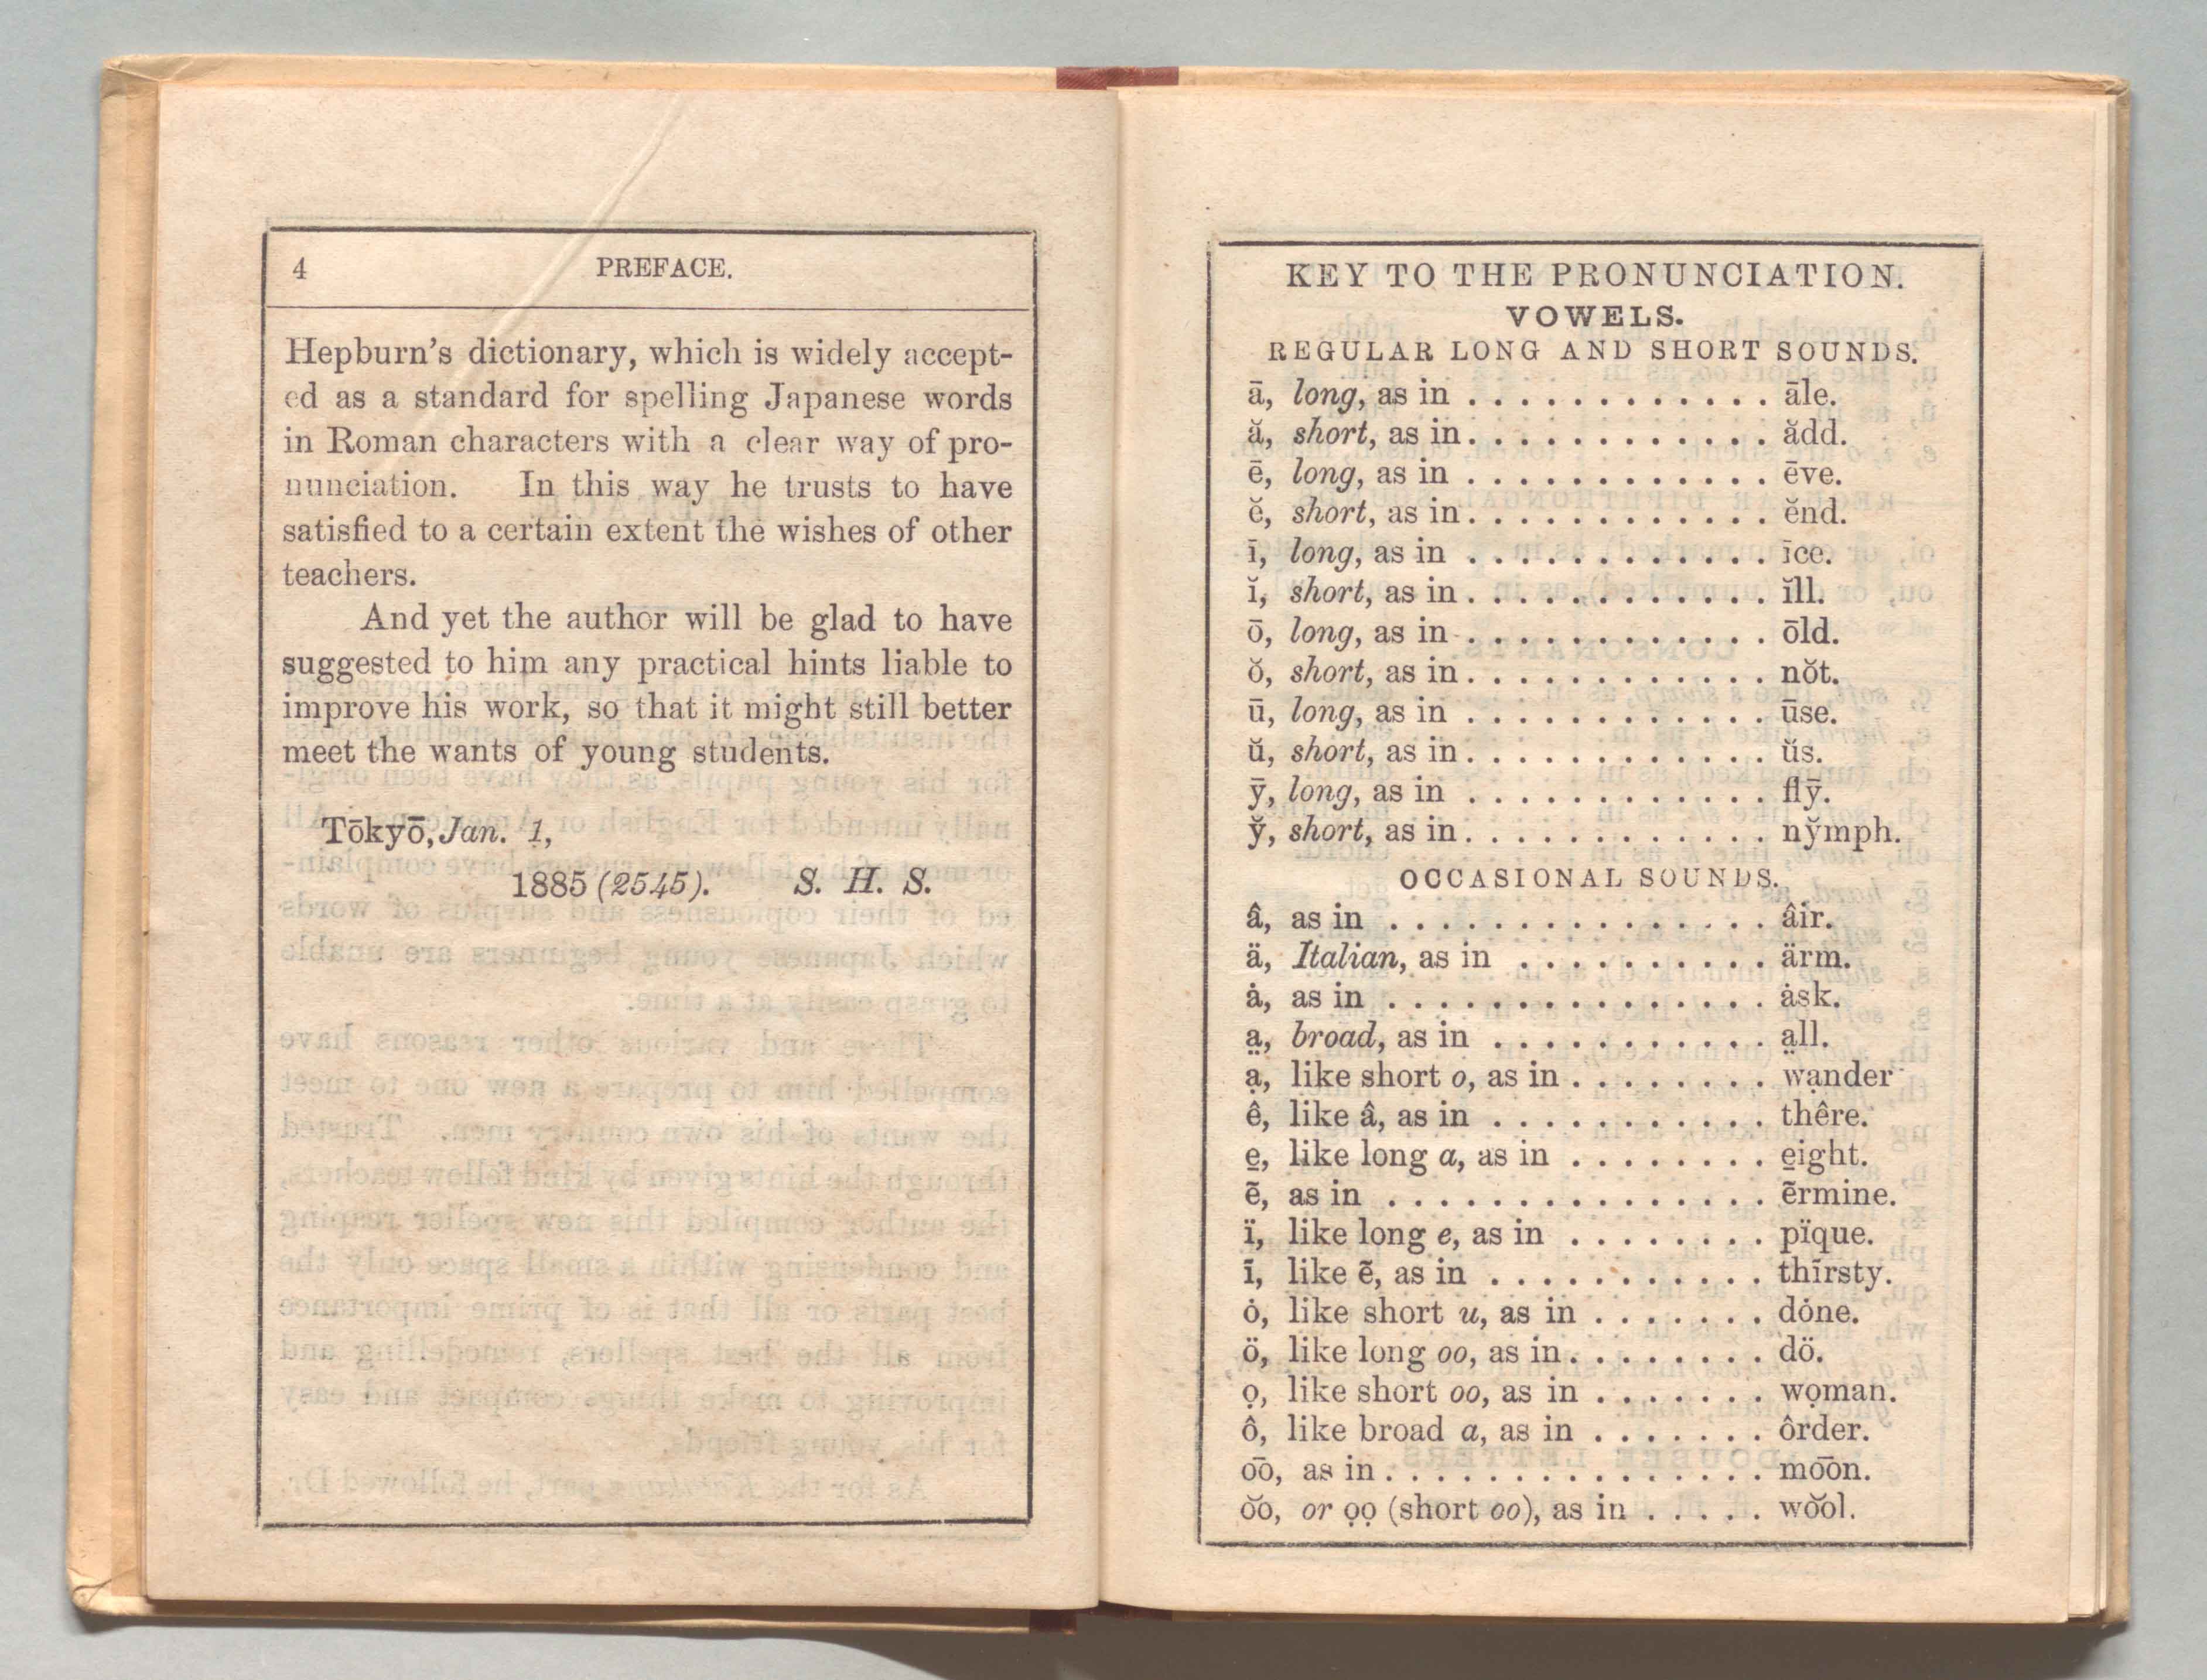 4 PREFACE.
Hepburn's dictionary, which is widely accept-
ed as a standard for spelling Japanese words
in Roman characters with a clear way of pro-
nunciation. In this way he trusts to have
satisfied to a certain extent the wishes of other
teachers.
And yet the author will be glad to have
suggested to him any practical hints liable to
improve his work, so that it might still better
meet the wants of young students.
Tōkyō, Jan. 1,
1885 (2545). S. H. S.
KEY TO THE PRONUNCIATION.
VOWELS.
REGULAR LONG AND SHORT SOUNDS.
ā, long, as in . . . . . . . . . . . . āle.
ă, short, as in. . . . . . . . . . . . ădd.
ē, long, as in . . . . . . . . . . . . ēve.
ĕ, short, as in. . . . . . . . . . . . ĕnd.
ī, long, as in . . . . . . . . . . . . īce.
ĭ, short, as in . . . . . . . . . . . . ĭll.
ō, long, as in . . . . . . . . . . . . ōld.
ŏ, short, as in. . . . . . . . . . . . nŏt.
ū, long, as in . . . . . . . . . . . . ūse.
ŭ, short, as in. . . . . . . . . . . . ŭs.
ȳ, long, as in . . . . . . . . . . . . flȳ.
y̆, short, as in. . . . . . . . . . . . ny̆mph.
OCCASIONAL SOUNDS.
â, as in . . . . . . . . . . . . . . . âir.
ä, Italian, as in . . . . . . . . . . ärm.
ȧ, as in . . . . . . . . . . . . . . . ȧsk.
a̤, broad, as in . . . . . . . . . . . a̤ll.
ạ, like short o, as in . . . . . . . . wạnder
ê, like â, as in . . . . . . . . . . . thêre.
e̱, like long a, as in . . . . . . . . e̱ight.
ẽ, as in . . . . . . . . . . . . . . . ẽrmine.
ï, like long e, as in . . . . . . . . pïque.
ī, like ẽ, as in . . . . . . . . . . . thīrsty.
ȯ, like short u, as in . . . . . . . dȯne.
ö, like long oo, as in. . . . . . . . dö.
ọ, like short oo, as in . . . . . . . wọman.
ô, like broad a, as in . . . . . . . ôrder.
o͞o, as in. . . . . . . . . . . . . . . mo͞on.
o͝o, or ọọ (short oo), as in . . . . . wo͝ol.